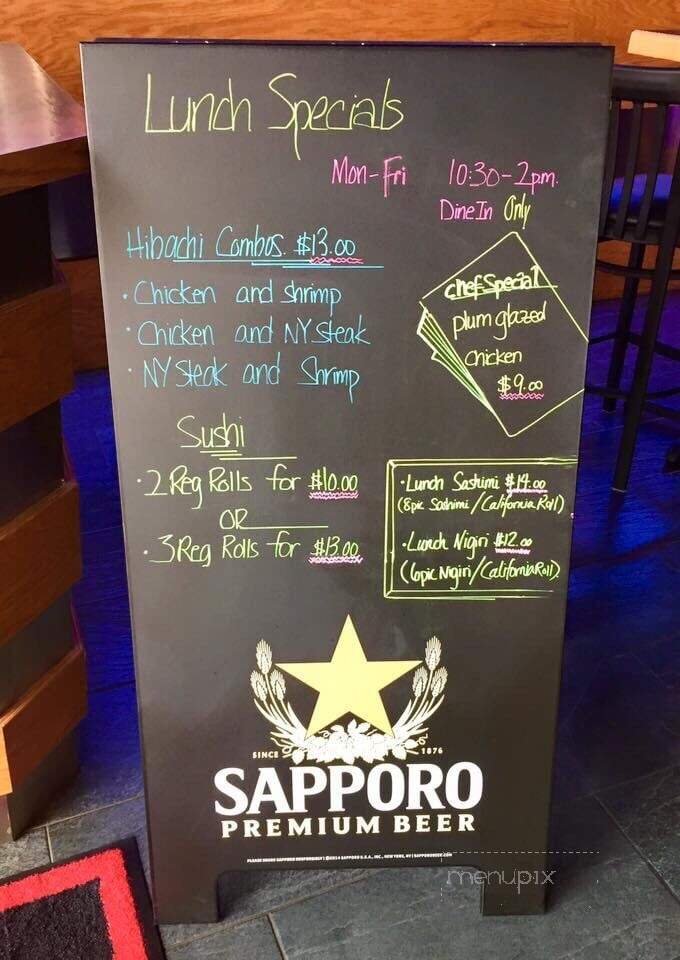 Lunch Specials
Mon-Fri 10:30-2pm.
Dine In Only
Hibachi Combos. $13.00
· Chicken and shrimp
· Chicken and NY Steak
· NY Steak and Shrimp
chef Special
plum glazed
chicken
$9.00
Sushi
· 2 Reg Rolls for $10.00
OR
· 3 Reg Rolls for $13.00
· Lunch Sashimi $14.00
(8pic Sashimi/California Roll)
· Lunch Nigiri $12.00
(6pic Nigiri/California Roll)
SINCE 1876
SAPPORO
PREMIUM BEER
PLEASE DRINK SAPPORO RESPONSIBLY | ©2014 SAPPORO U.S.A., INC., NEW YORK, NY | SAPPOROBEER.COM
menupix